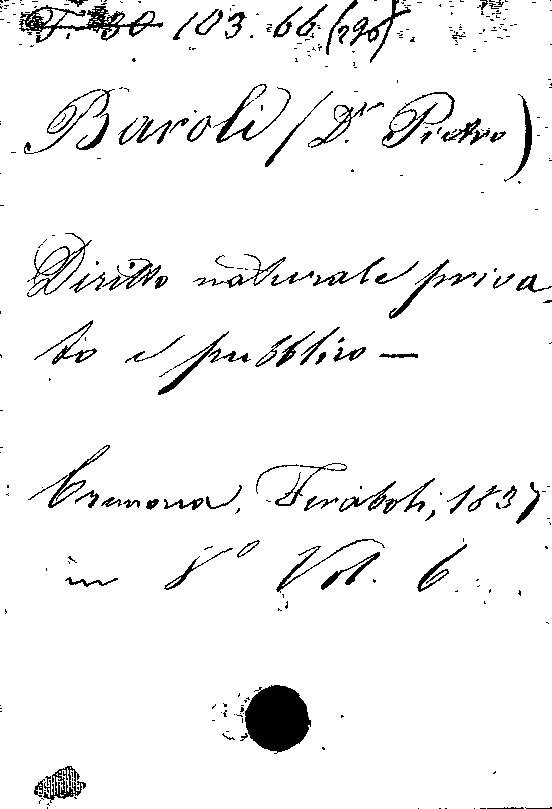 T. 30 103. 66 (296).
Baroli (Dr. Pietro)
Diritto naturale priva-
to e pubblico —
Cremona, Feraboli, 1837
in 8° Vol. 6